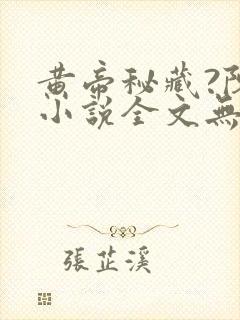 黃帝秘藏?
小說全文無
張芷溪